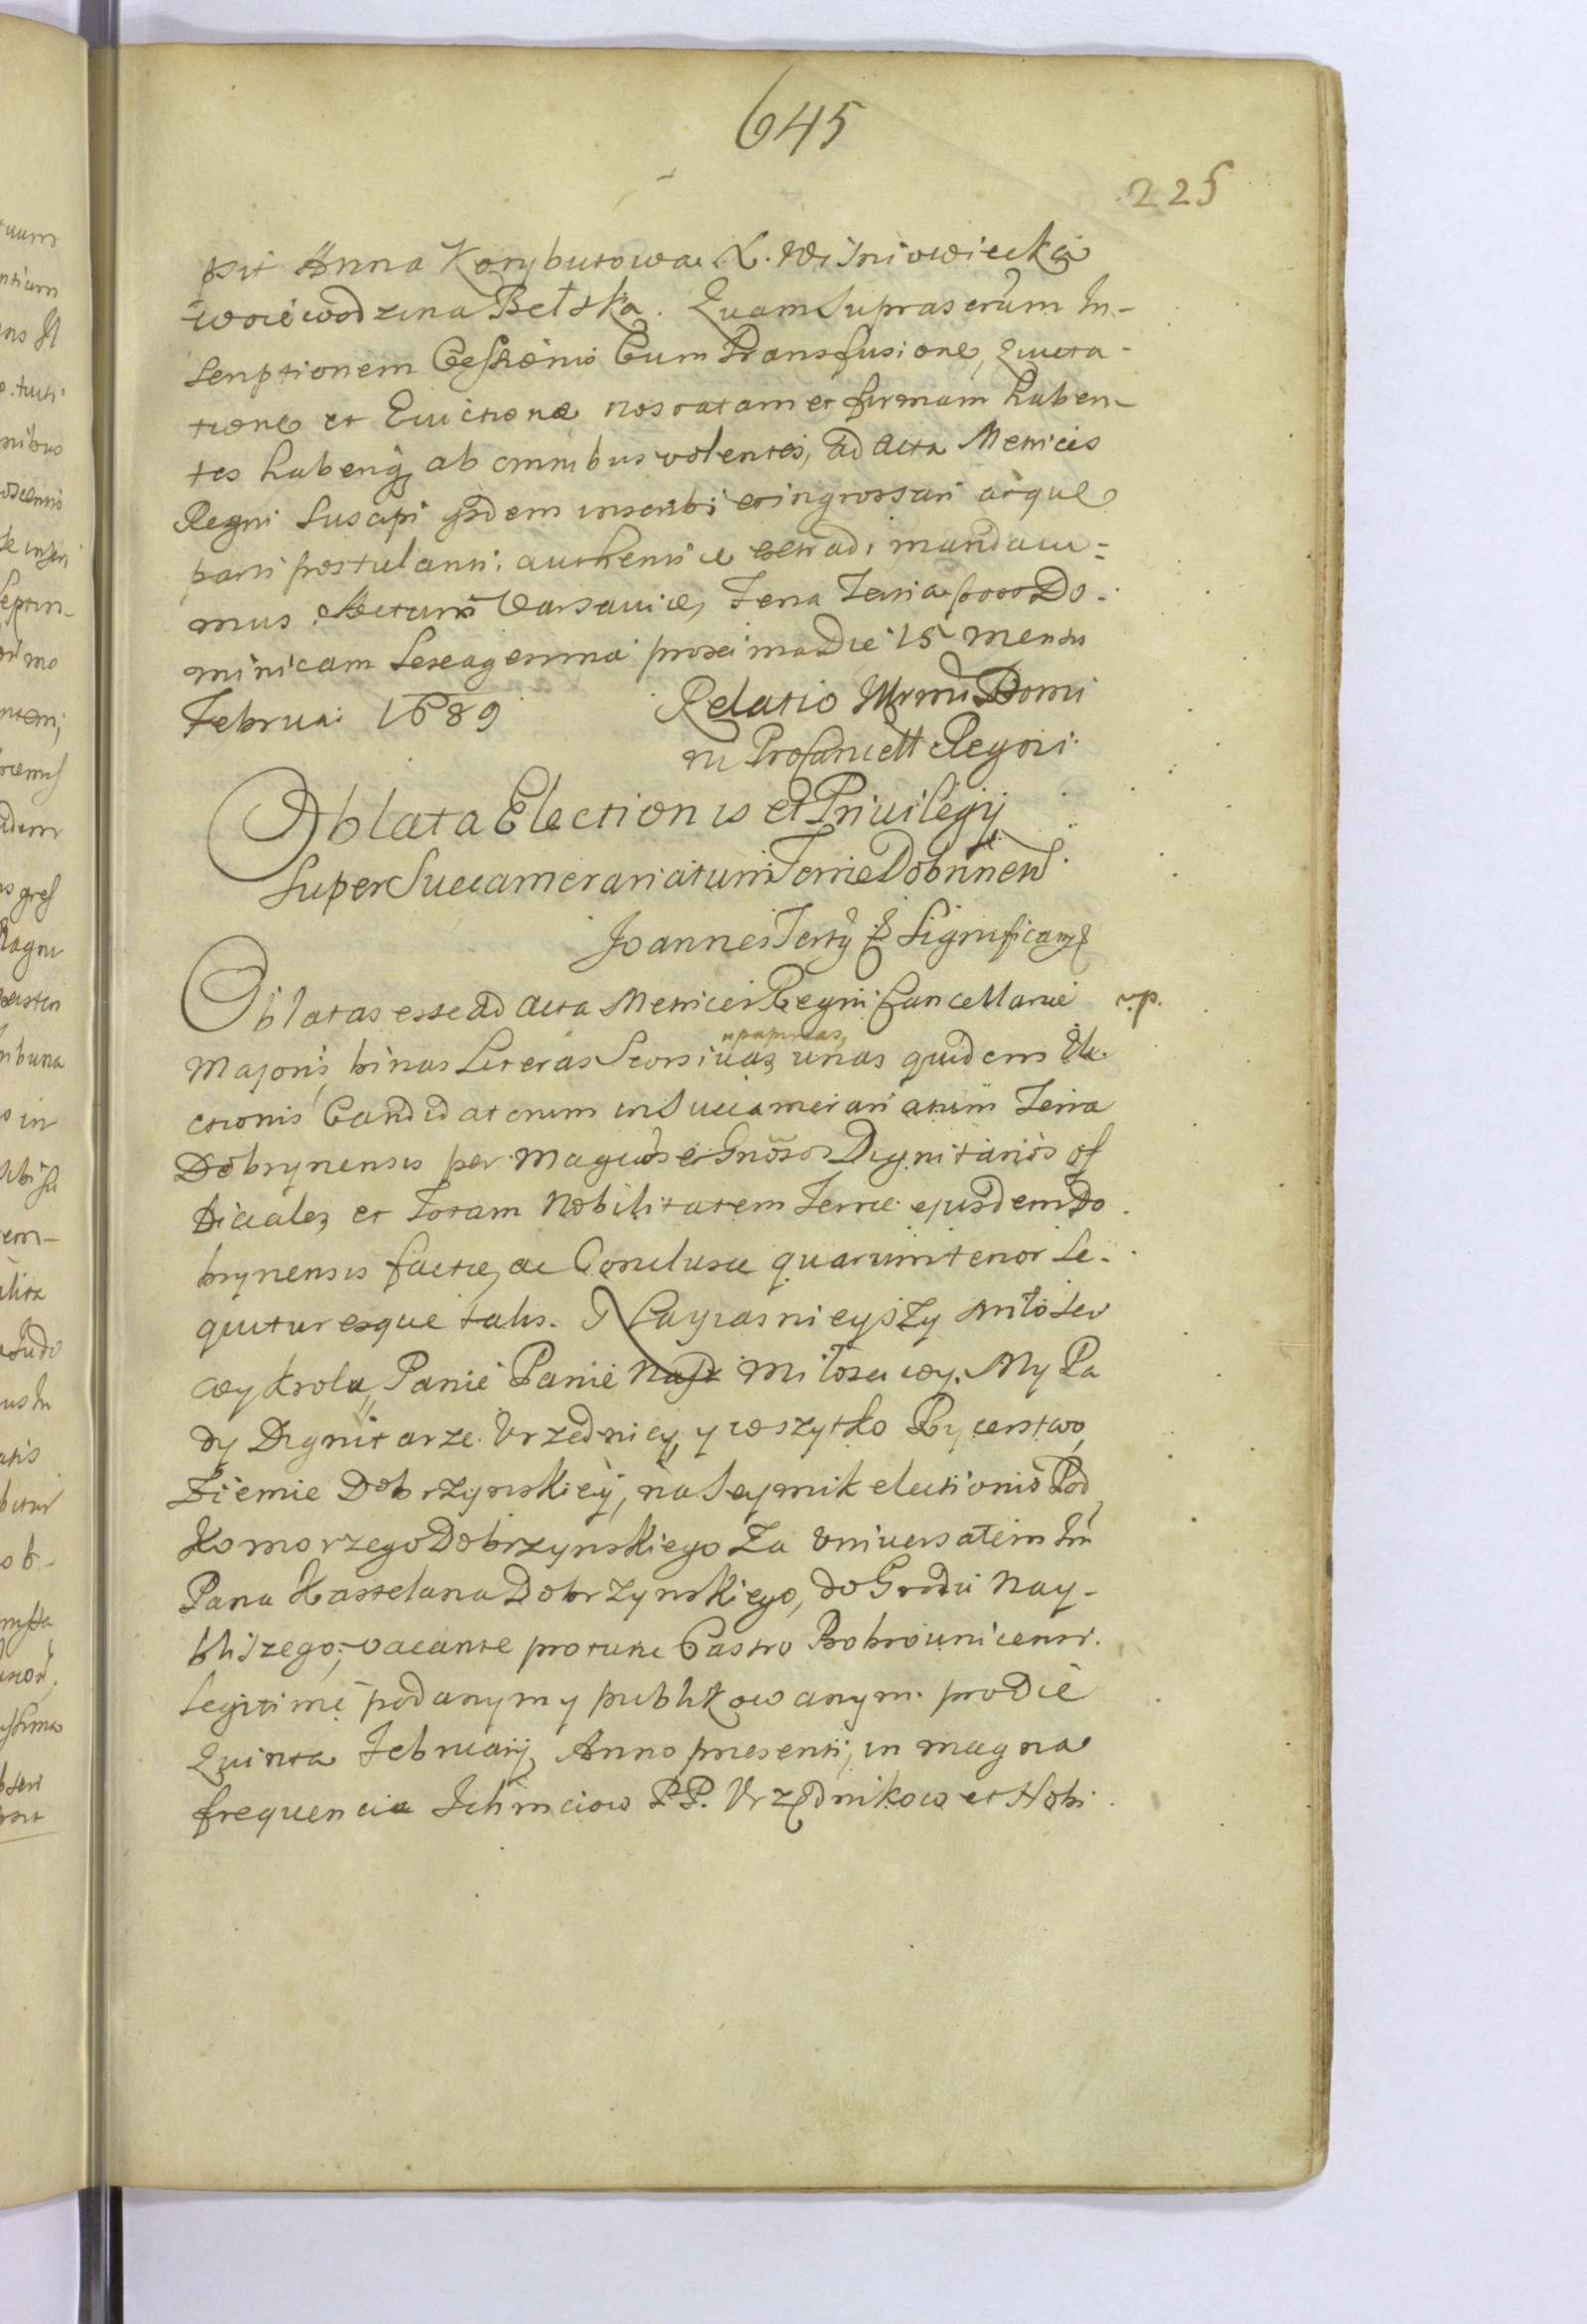 645
225
psit Anna Korybutowa X. Wiśniowiecka
woiewodzina Bełska. Quam Suprascrām In-
scriptionem Cessionis Cum Transfusione, Quieta-
tione et Euictione nos ratam et firmam haben-
tes haberiq ab omnibus volentes, ad Acta Metrices
Regni Suscipi ijsdem inscribi et ingrossari atque
parti postulanti authentice extradi mandaui-
mus. Actum Varsauiæ, Feria Tertia post Do-
minicam Sexagesima proxima Die 15 mensis
Februai 1689
Relatio Illrmi Domi
ni ProCancell Regni
Oblata Electionis et Privilegij
Super Succamerariatum Terræ Dobrinen
Joannes Tertÿ & Significamꝫ
Oblatas esse ad Acta Metrices Regni Cancellariæ
v.p.
Majoris, binas Literas Seorsivas
papireas,
unas quidem Ele-
ctionis Candidatorum in Succamerariatum Terra
Dobrynensis per Magcos et Gnosos Dignitarios of
ficiales, et Totam Nobilitatem Terræ ejusdem Do
brynensis factæ, ac Conclusæ quarum tenor Se-
quitur esque talis. Nayiasnieyszy Miłości
wy krolu, Panie Panie Nasz Miłosciwy. My Ra
dy Dignitarze Vrzednicy, y wszytko Rycerstwo,
Ziemie Dobrzynskiey, na Seymik electionis Pod
Komorzego Dobrzynskiego Za Vniversałem Im
Pana Kasztelana Dobrzynskiego, do Grodu Nay-
bliszego, vacante protunc Castro Bobrounicensi
legitime podanym y publikowanym pro Die
Quinta Februarij Anno præsenti, in magna
frequencia Ichmciow P.P. Vrzędnikow et Nobi